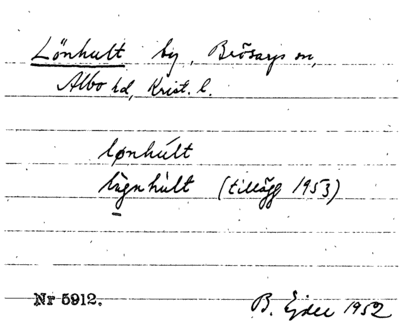 Lönhult by, Brösarps sn,
Albo hd, Krist. l.
lønhúlt
lùgnhùlt (tillägg 1953)
Nr 5912. B. Ejder 1952